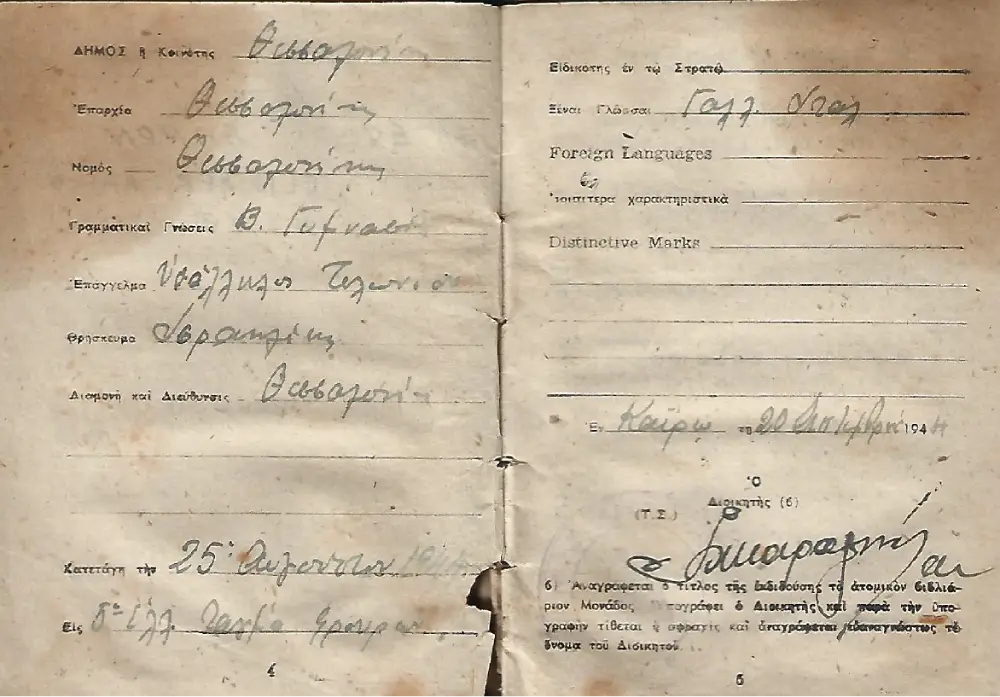 ΔΗΜΟΣ ἢ Κοινότης Θεσσαλονίκη
Ἐπαρχία Θεσσαλονίκης
Νομός Θεσσαλονίκης
Γραμματικαὶ Γνώσεις Β. Γυμνασίου
Ἐπάγγελμα Ὑπάλληλος Τελωνείου
Θρήσκευμα Ἰσραηλίτης
Διαμονὴ καὶ Διεύθυνσις Θεσσαλονίκη
Κατετάγη τὴν 25ῃ Αὐγούστου 1944
Εἰς 8ον Ἑλλ Τάγμα Φρουρῶν
4
Εἰδικότης ἐν τῷ Στρατῷ
Ξέναι Γλῶσσαι Γαλλ. Ἰταλ
Foreign Languages
Ἰδιαίτερα χαρακτηριστικὰ
Distinctive Marks
Ἐν Καΐρῳ τῇ 20 Σεπτεμβρίου 1944
Ὁ
Διοικητὴς (6)
(Τ.Σ.)
6) Ἀναγράφεται ὁ τίτλος τῆς ἐκδιδούσης τὸ ἀτομικὸν βιβλιά-
ριον Μονάδος Ὑπογράφει ὁ Διοικητὴς καὶ παρὰ τὴν ὑπο-
γραφὴν τίθεται ἡ σφραγὶς καὶ ἀναγράφεται εὐαναγνώστως τὸ
ὄνομα τοῦ Διοικητοῦ.
5